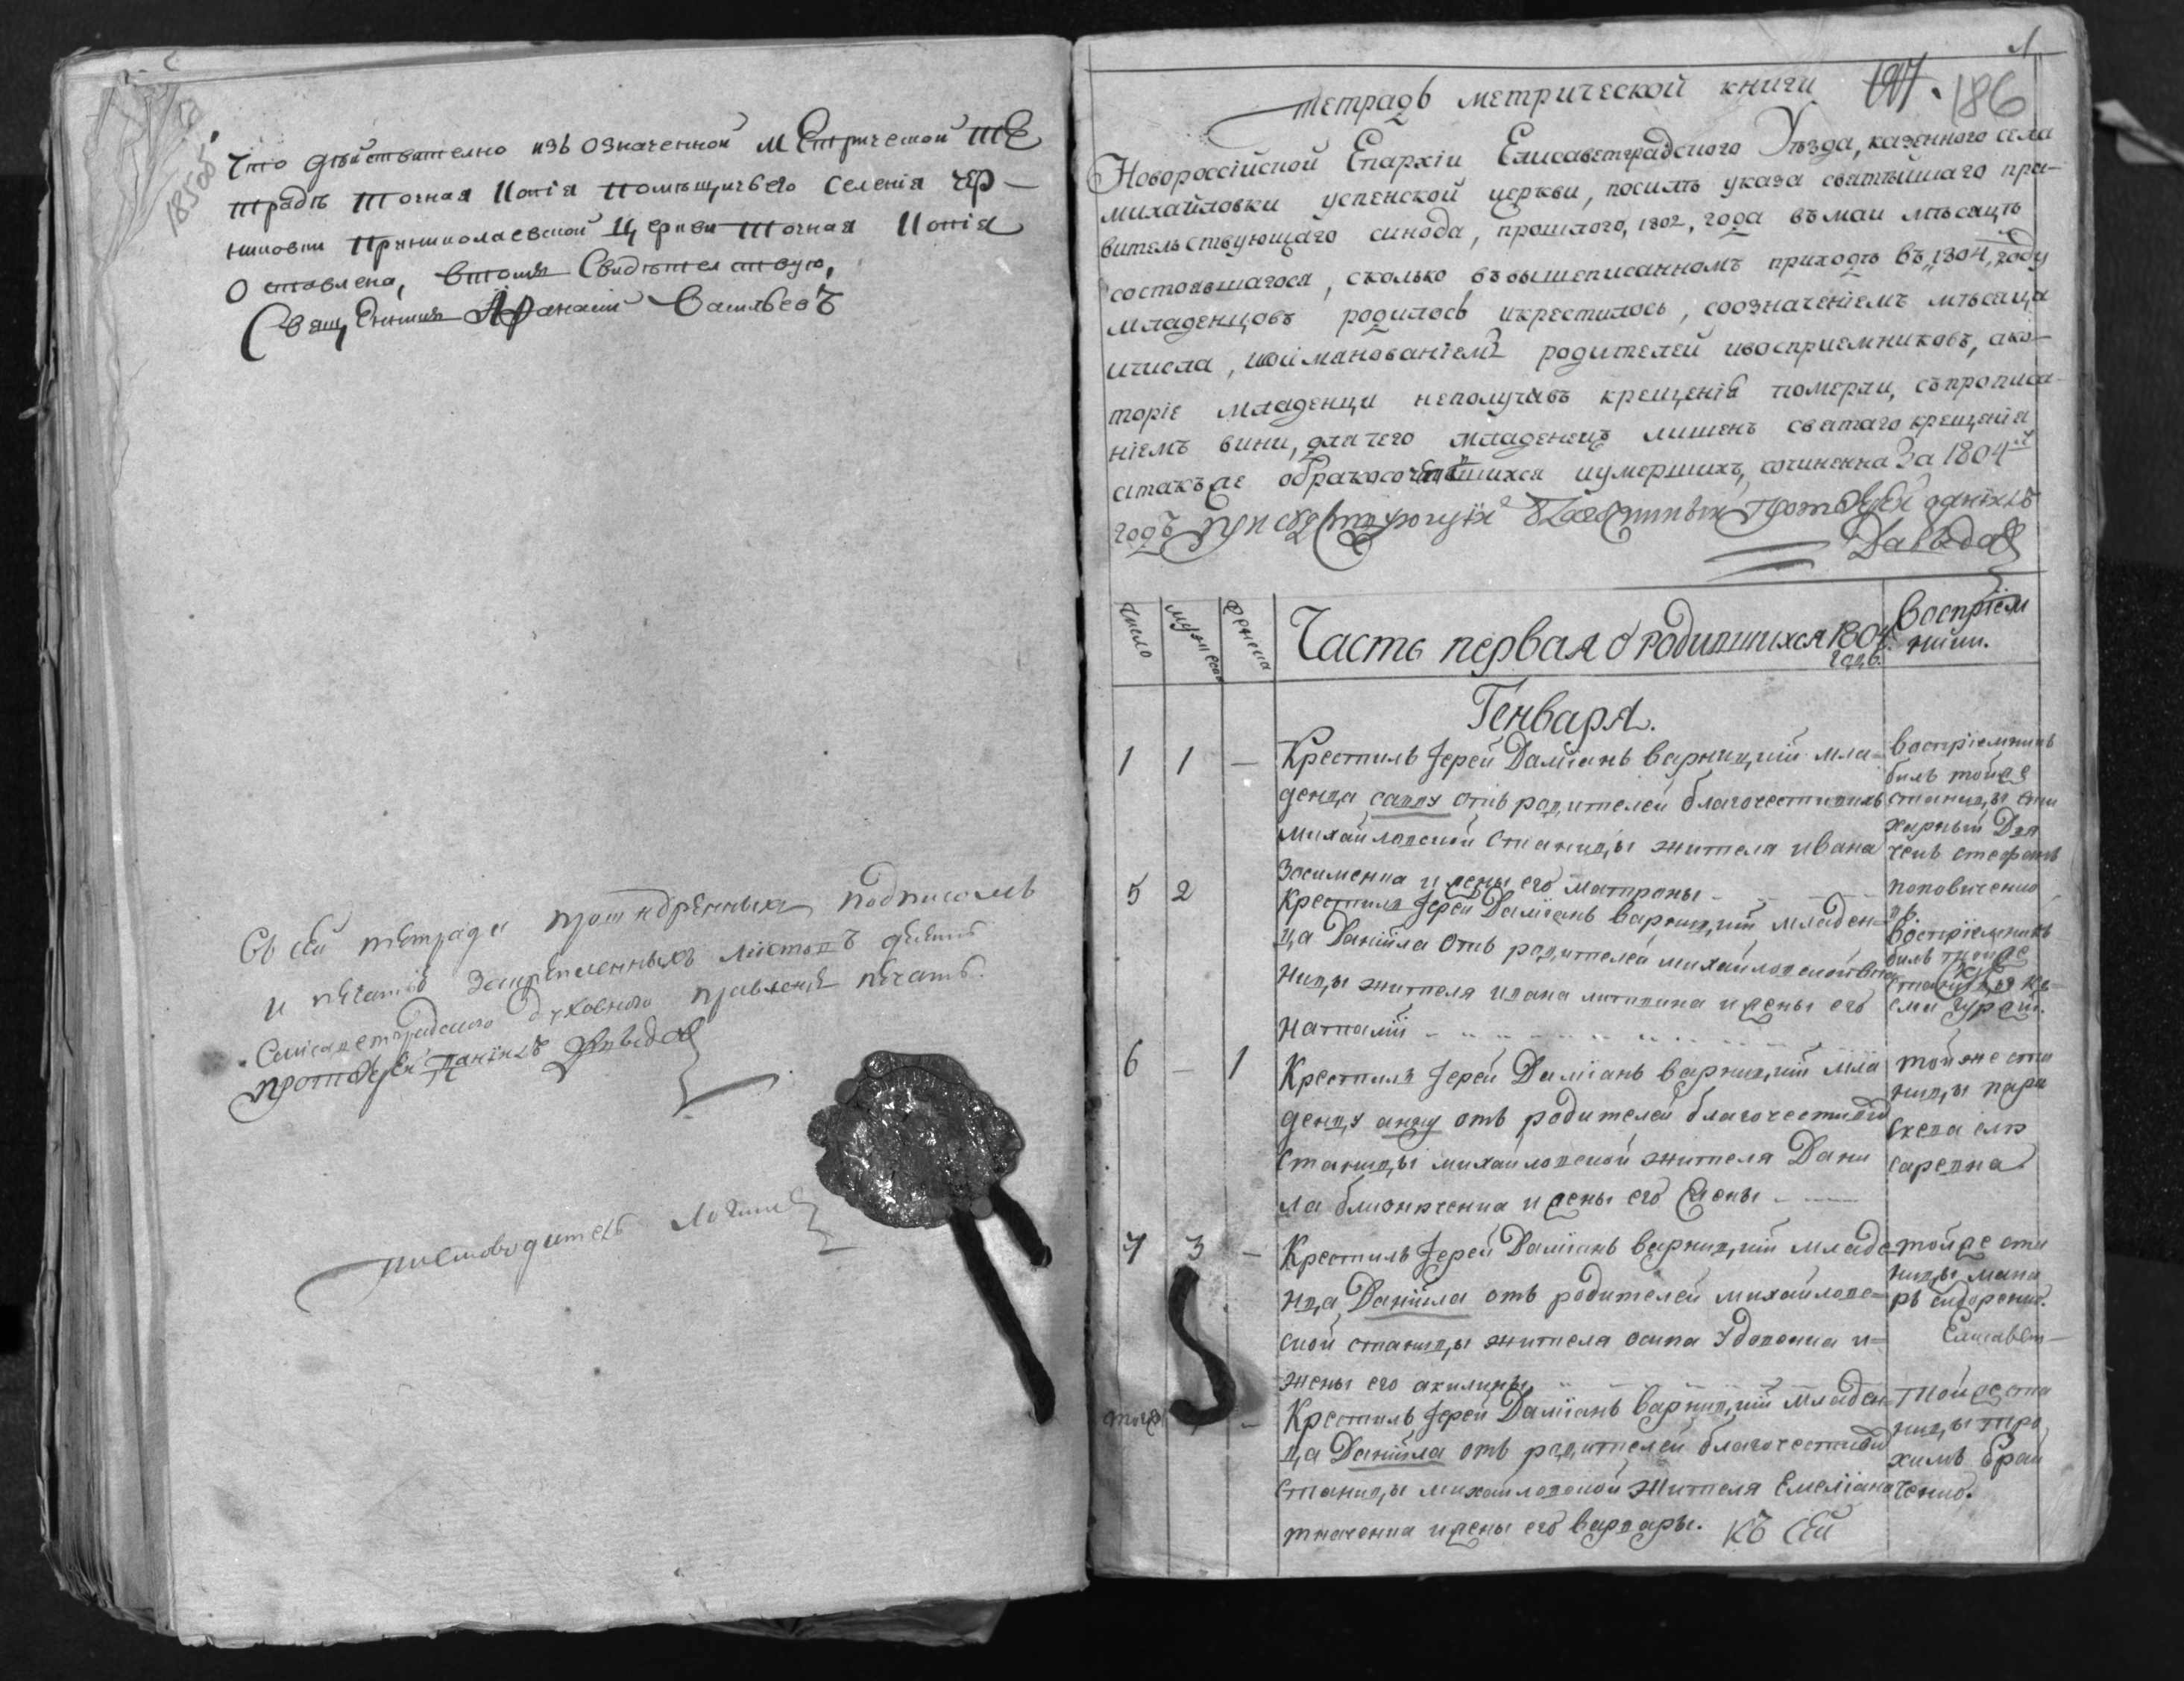 185 об
Что дѣйствително изъ означенной метрической те
традѣ точная копія помѣщичьего селенія чер-
никовки Николаевской церкви точная копія
оставлена, втомъ свидѣтелствую,
Священникъ Афанасій Васильевъ
Въ сей тетради прошнуренныхъ подписомъ
и печатію закрѣпленныхъ листовъ
Елисаветградского духовного правленія печать.
протоіерей Даніилъ Давыдов
писмоводитель Логинов
1
197. 186
тетрадь метрической книги
Новороссійской Епархіи Елисаветградского Уѣзда, казенного села
михайловки успенской церкви, посилѣ указа святѣйшаго пра-
вительствующаго синода, прошлого, 1802, года въ маи мѣсяцѣ
состоявшагося, сколько въ вышеписанномъ приходѣ въ 1804, году
младенцовъ родилось икрестилось, соозначеніемъ мѣсяца
ичисла, иоимянованіемъ родителей ивосприемниковъ, ако-
торіе младенци неполучивъ крещенія померли, съпрописа-
ніемъ вини, для чего младенецъ лишенъ святаго крещенія
атакъже обракосочетавшихся иумершихъ, сочиненна За 1804й
годъ Присудствующій протоіерей даніилъ
Давыдов
Число
мужеска
женска
Часть первая о родившихся 1804
года.
Воспріем
ники.
Генваря.
1 1 —
Крестилъ Іерей Даміанъ варницкій мла-
денца савву отъ родителей благочестивихъ
михайловской станицы жителя ивана
Зосименка и жены его матроны - -
воспріемникъ
билъ тойже
станицы
Стефанъ
поповиченко
5 2
Крестилъ Іерей Даміанъ варницкій младен-
ца Даніила отъ родителей михайловской ста
ницы жителя ивана литвина и жены его
наталіи - - - -
воспріемникъ
билъ тойже
станицы
6 — 1
Крестилъ Іерей Даміанъ варницкій мла
денцу анну отъ родителей благочестивий
станицы михайловской жителя Дани
ла близнюченка и жены его Елены - -
той же ста
ницы пара
скева
7 3 —
Крестилъ Іерей Даміанъ варницкій младе
нца Даніила отъ родителей михайловс-
ской станицы жителя осипа Удовенка и-
жены его акилины, - -
тойже ста
ницы мака
ръ сидоренко.
Елисавет-
тогож —
Крестилъ Іерей Даміанъ варницкій младен
ца Даніила отъ родителей благочестивий
станицы михайловской жителя Емеліана
ткаченка и жены его варвары. къ сей
тойже ста
ницы тро
химъ
ченко.